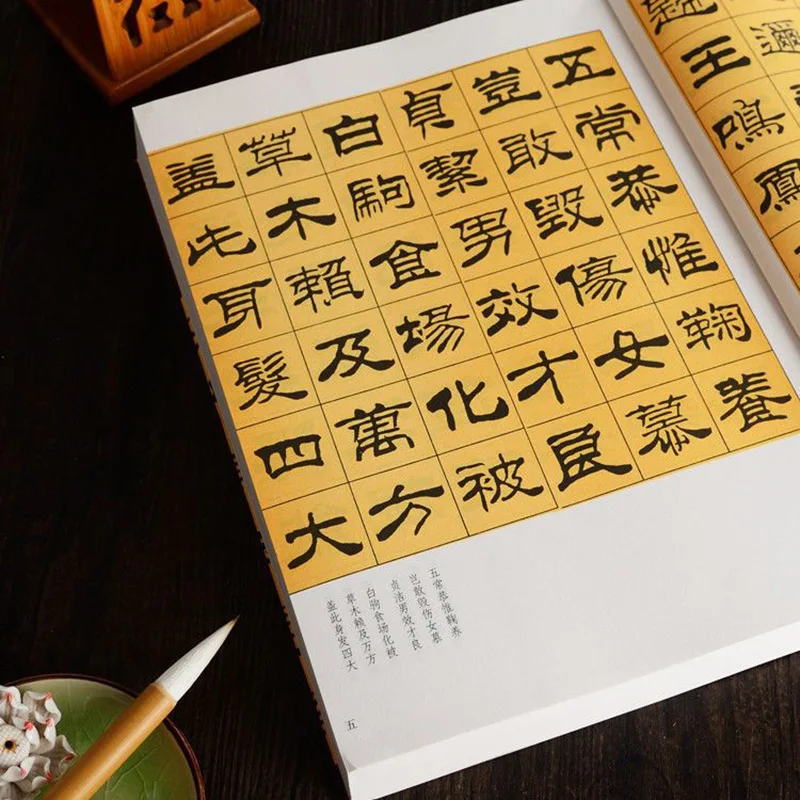 邇
王鳴鳳
五常恭惟鞠養
豈敢毀傷女慕
貞絜男效才良
白駒食場化被
草木賴及萬方
盖此身髮四大
五常恭惟鞠养
岂敢毁伤女慕
贞洁男效才良
白驹食场化被
草木赖及万方
盖此身发四大
五